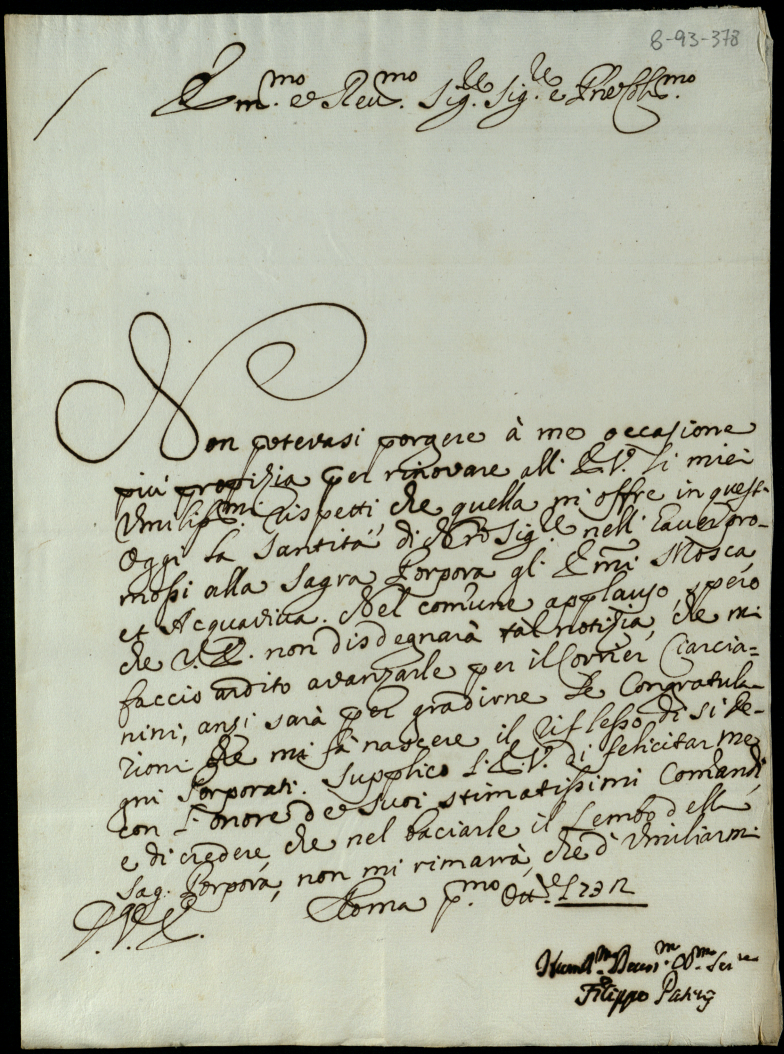 B-93-378
Em.mo e Reu.mo Sig.re Sig.re e Pne Col.mo
Non potevasi porgere à me occasione
più propizia per rinovare all' E.V. li miei
Vmiliss.mi rispetti, che quella mi offre in quest'
Oggi la Santità di Nro Sig.re nell' haver pro-
mossi alla Sagra Porpora gl' Em̃i Mosca
et Acquaviva. Nel comune applauso, spero
che V.E. non disdegnarà tal notizia, che mi
faccio ardito avanzarle per il Corrier Ciarcia=
nini, anzi sarà per gradirne le Congratula-
zioni che mi fà nascere il riflesso di si de-
gni Porporati. Supplico l'E.V. di felicitarme
con l'onore de suoi stimatissimi Comandi,
e di credere, che nel baciarle il Lembo della
Sag. Porpora, non mi rimarrà, che d' Vmiliarmi
D.V.E. Roma p.mo Ott.e 1732
Humil.mo Deuot.mo Ob.mo Ser.re
Filippo